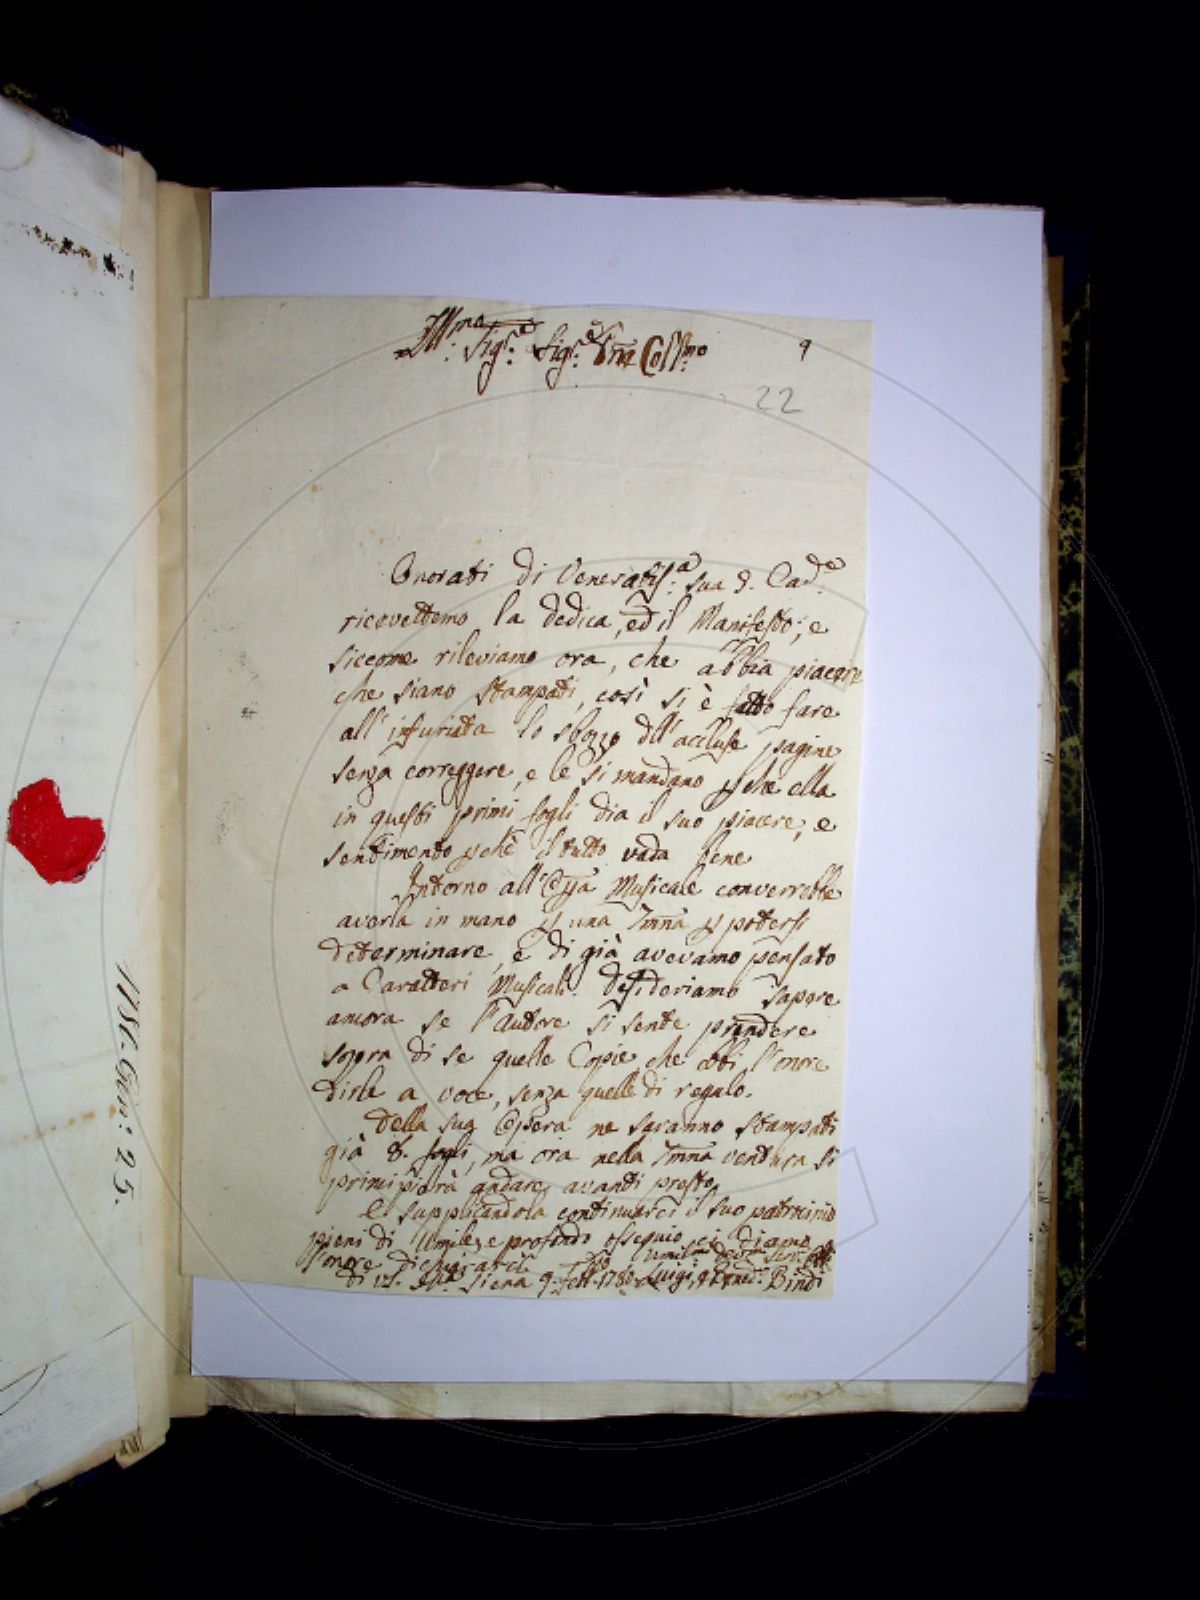 Ill.mo Sig.e Sig.e Prñ Col.mo
9
22
Onorati di Veneratis.a sua d. Cad.e
ricevettemo la dedica, ed il Manifesto; e
siccome rileviamo ora, che abbia piacere
che siano stampati, così si è fatto fare
all'infuriata lo sbozzo dll'accluse pagine
senza correggere, e le si mandano pche ella
in questi primi fogli dia il suo piacere, e
sentimento pchè il tutto vada bene
Intorno all'Opa Musicale converrebbe
averla in mano p una 7mña p potersi
determinare, e di già avevamo pensato
a Caratteri Musicali. Desideriamo sapere
ancora se l'Autore si sente prendere
sopra di se quelle Copie che ebbi l'onore
dirle a voce, senza quelle di regalo.
Della sua Opera ne saranno stampati
già 8. fogli, ma ora nella 7mña ventura si
principierà andare avanti presto.
E supplicandola continuarci il suo patrocinio
pieni di umile, e profondo ossequio ci diamo
l'onore dichiararci
di VS. Ill.ma Siena 9. Febb. 1780 Luigi, e Bened. Bindi
1781. Gen: 25.